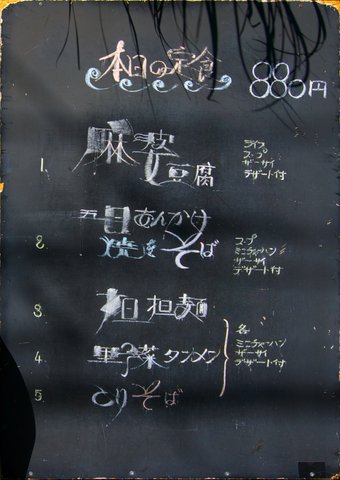 本日の定食 880円
1. 麻婆豆腐
ライス
スープ
ザーサイ
デザート付
2. 五目あんかけ
焼きそば
スープ
ミニチャーハン
ザーサイ
デザート付
3. 担麺
4. 野菜タンメン
5. とりそば
各
ミニチャーハン
ザーサイ
デザート付